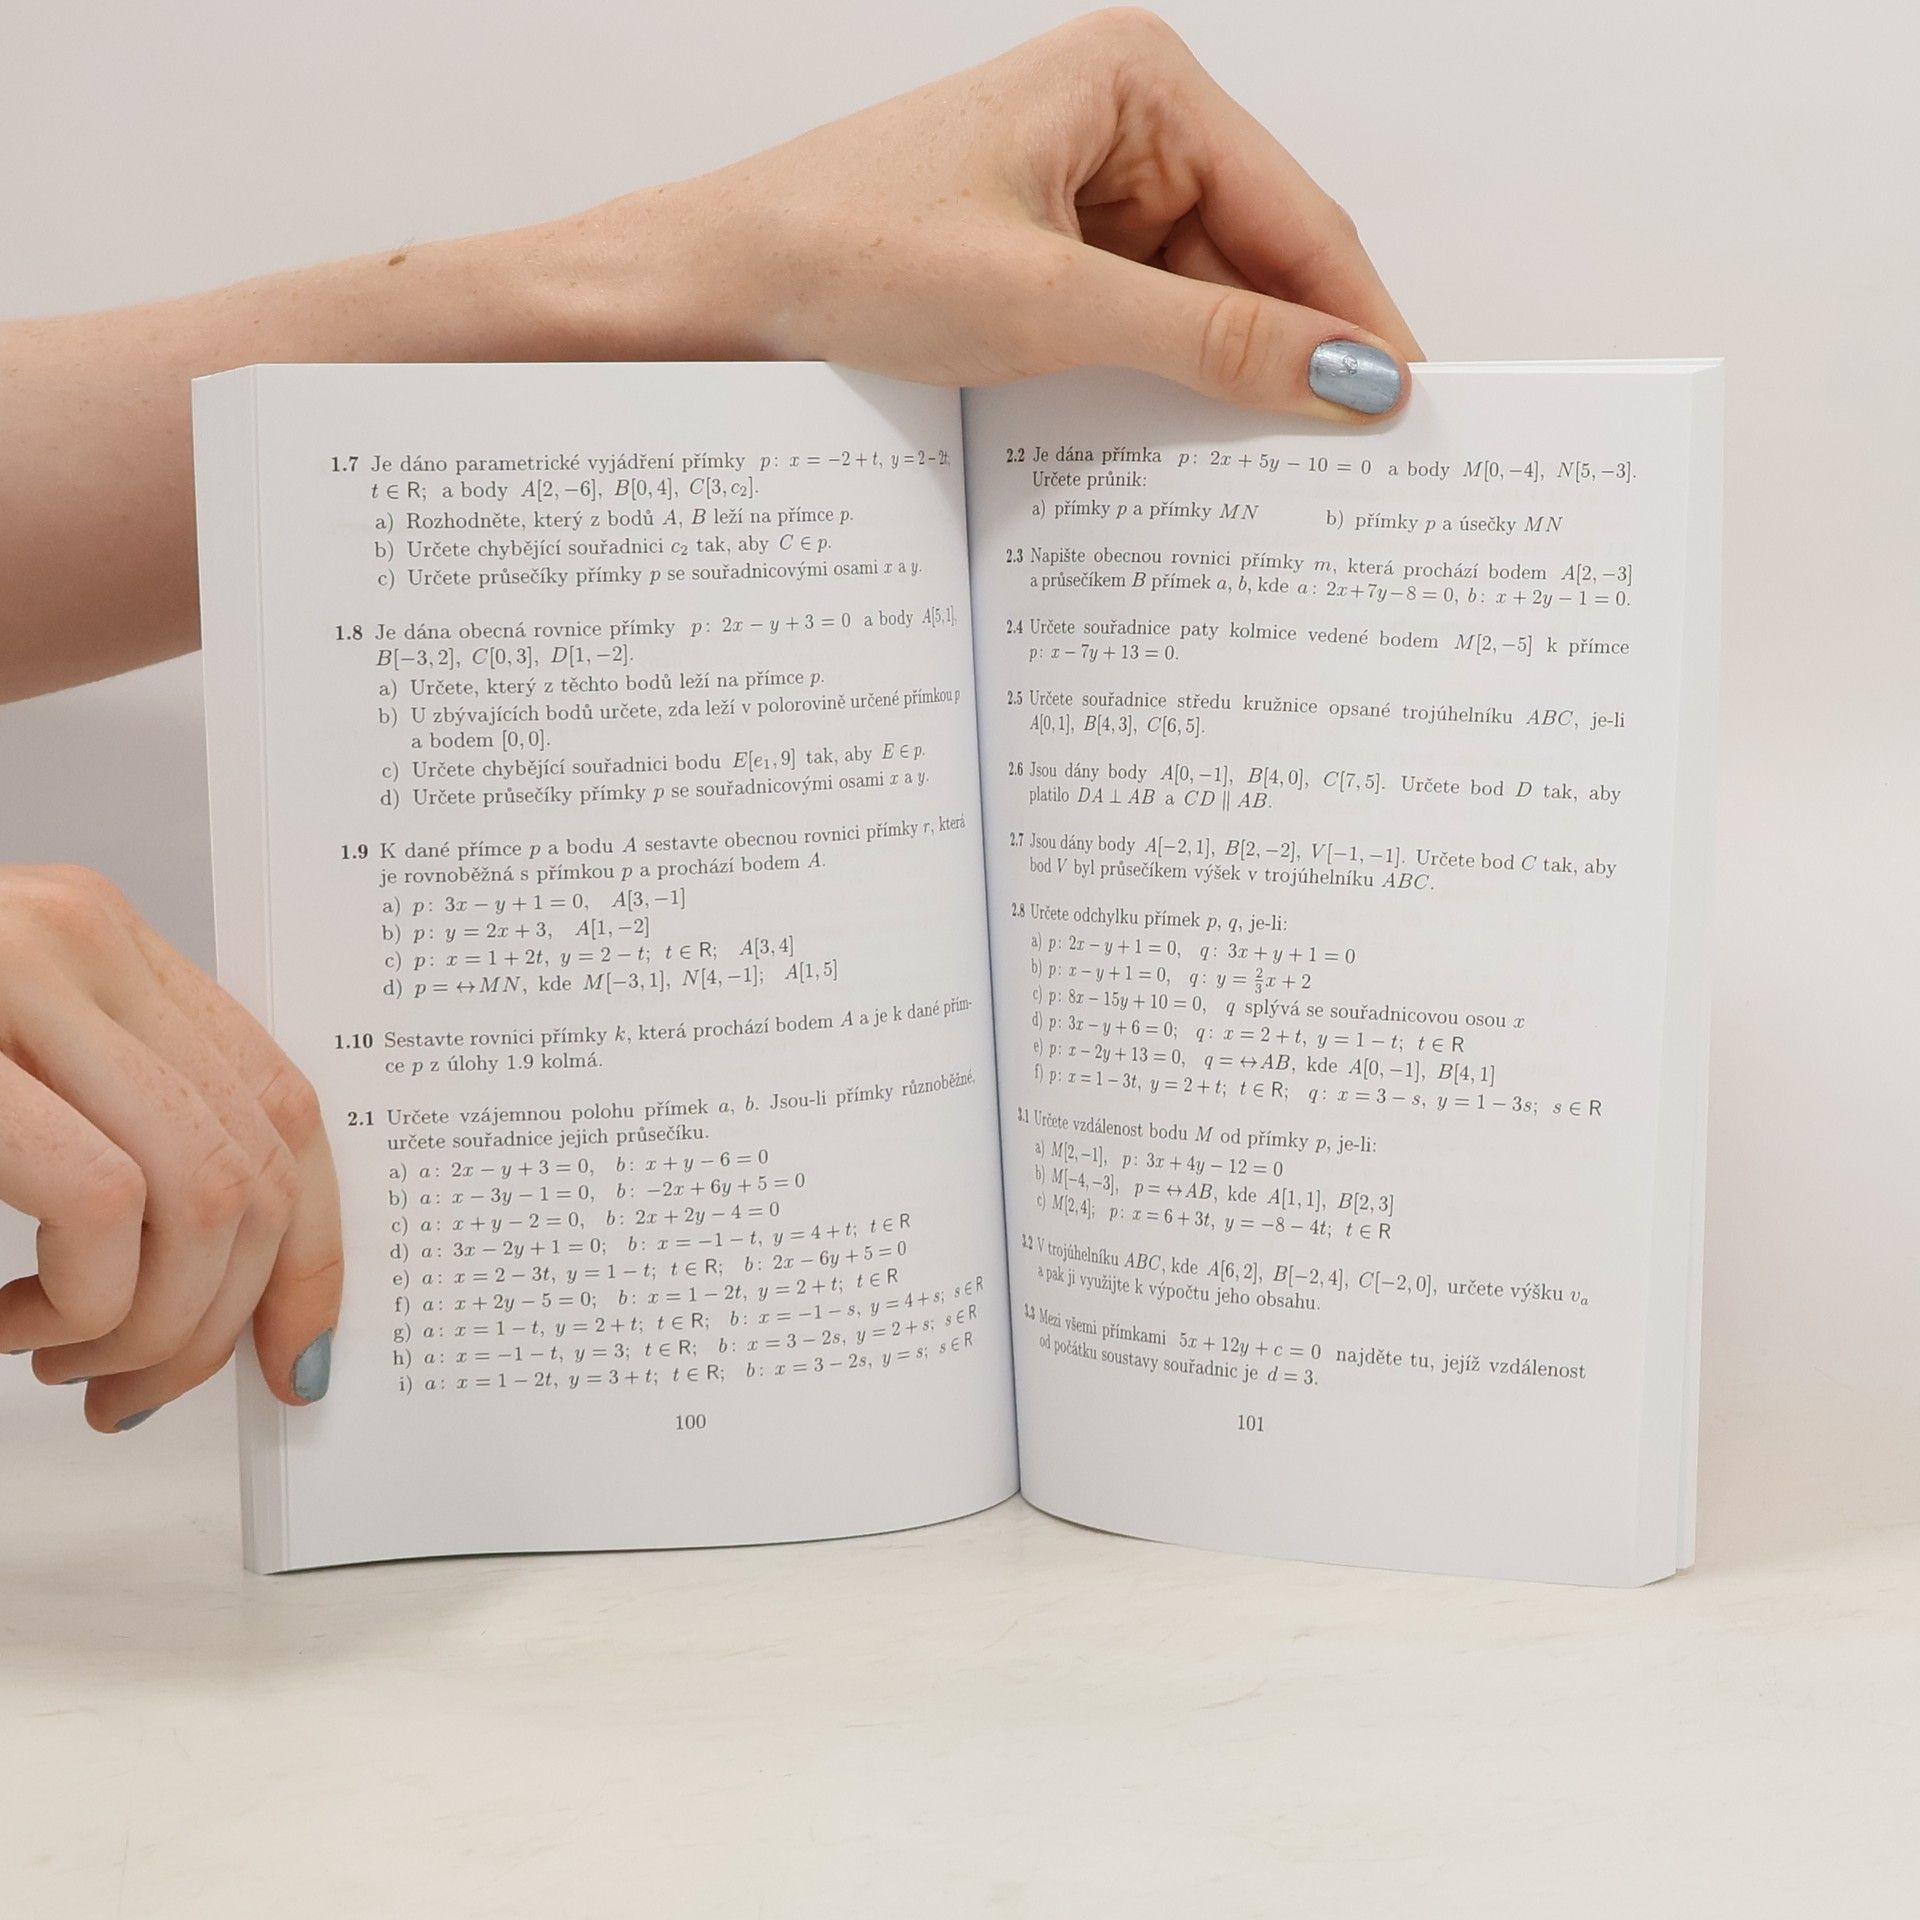 1.7 Je dáno parametrické vyjádření přímky p: x = −2 + t, y = 2 − 2t,
t ∈ R; a body A[2, −6], B[0, 4], C[3, c₂].
a) Rozhodněte, který z bodů A, B leží na přímce p.
b) Určete chybějící souřadnici c₂ tak, aby C ∈ p.
c) Určete průsečíky přímky p se souřadnicovými osami x a y.
1.8 Je dána obecná rovnice přímky p: 2x − y + 3 = 0 a body A[5, 1],
B[−3, 2], C[0, 3], D[1, −2].
a) Určete, který z těchto bodů leží na přímce p.
b) U zbývajících bodů určete, zda leží v polorovině určené přímkou p
a bodem [0, 0].
c) Určete chybějící souřadnici bodu E[e₁, 9] tak, aby E ∈ p.
d) Určete průsečíky přímky p se souřadnicovými osami x a y.
1.9 K dané přímce p a bodu A sestavte obecnou rovnici přímky r, která
je rovnoběžná s přímkou p a prochází bodem A.
a) p: 3x − y + 1 = 0, A[3, −1]
b) p: y = 2x + 3, A[1, −2]
c) p: x = 1 + 2t, y = 2 − t; t ∈ R; A[3, 4]
d) p = ↔MN, kde M[−3, 1], N[4, −1]; A[1, 5]
1.10 Sestavte rovnici přímky k, která prochází bodem A a je k dané přím-
ce p z úlohy 1.9 kolmá.
2.1 Určete vzájemnou polohu přímek a, b. Jsou-li přímky různoběžné,
určete souřadnice jejich průsečíku.
a) a: 2x − y + 3 = 0, b: x + y − 6 = 0
b) a: x − 3y − 1 = 0, b: −2x + 6y + 5 = 0
c) a: x + y − 2 = 0, b: 2x + 2y − 4 = 0
d) a: 3x − 2y + 1 = 0; b: x = −1 − t, y = 4 + t; t ∈ R
e) a: x = 2 − 3t, y = 1 − t; t ∈ R; b: 2x − 6y + 5 = 0
f) a: x + 2y − 5 = 0; b: x = 1 − 2t, y = 2 + t; t ∈ R
g) a: x = 1 − t, y = 2 + t; t ∈ R; b: x = −1 − s, y = 4 + s; s ∈ R
h) a: x = −1 − t, y = 3; t ∈ R; b: x = 3 − 2s, y = 2 + s; s ∈ R
i) a: x = 1 − 2t, y = 3 + t; t ∈ R; b: x = 3 − 2s, y = s; s ∈ R
100
2.2 Je dána přímka p: 2x + 5y − 10 = 0 a body M[0, −4], N[5, −3].
Určete průnik:
a) přímky p a přímky MN b) přímky p a úsečky MN
2.3 Napište obecnou rovnici přímky m, která prochází bodem A[2, −3]
a průsečíkem B přímek a, b, kde a: 2x + 7y − 8 = 0, b: x + 2y − 1 = 0.
2.4 Určete souřadnice paty kolmice vedené bodem M[2, −5] k přímce
p: x − 7y + 13 = 0.
2.5 Určete souřadnice středu kružnice opsané trojúhelníku ABC, je-li
A[0, 1], B[4, 3], C[6, 5].
2.6 Jsou dány body A[0, −1], B[4, 0], C[7, 5]. Určete bod D tak, aby
platilo DA ⊥ AB a CD ∥ AB.
2.7 Jsou dány body A[−2, 1], B[2, −2], V[−1, −1]. Určete bod C tak, aby
bod V byl průsečíkem výšek v trojúhelníku ABC.
2.8 Určete odchylku přímek p, q, je-li:
a) p: 2x − y + 1 = 0, q: 3x + y + 1 = 0
b) p: x − y + 1 = 0, q: y = 2/3x + 2
c) p: 8x − 15y + 10 = 0, q splývá se souřadnicovou osou x
d) p: 3x − y + 6 = 0; q: x = 2 + t, y = 1 − t; t ∈ R
e) p: x − 2y + 13 = 0, q = ↔AB, kde A[0, −1], B[4, 1]
f) p: x = 1 − 3t, y = 2 + t; t ∈ R; q: x = 3 − s, y = 1 − 3s; s ∈ R
3.1 Určete vzdálenost bodu M od přímky p, je-li:
a) M[2, −1], p: 3x + 4y − 12 = 0
b) M[−4, −3], p = ↔AB, kde A[1, 1], B[2, 3]
c) M[2, 4]; p: x = 6 + 3t, y = −8 − 4t; t ∈ R
3.2 V trojúhelníku ABC, kde A[6, 2], B[−2, 4], C[−2, 0], určete výšku vₐ
a pak ji využijte k výpočtu jeho obsahu.
3.3 Mezi všemi přímkami 5x + 12y + c = 0 najděte tu, jejíž vzdálenost
od počátku soustavy souřadnic je d = 3.
101